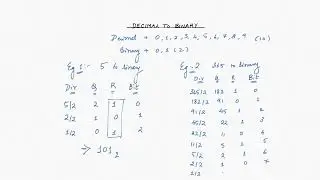 DECIMAL TO BINARY
Decimal → 0,1,2,3,4,5,6,7,8,9 (10)
Binary → 0,1 (2)
Eg 1:- 5 to binary
Div Q R Bit
5/2 2 1 0
2/2 1 0 1
1/2 0 1 2
→ 101₂
Eg:-2 365 to binary
Div Q R Bit
365/2 182 1 0
182/2 91 0 1
91/2 45 1 2
45/2 22 1 3
22/2 11 0 4
11/2 5 1 5
5/2 2 1 6
2/2 1 0 7